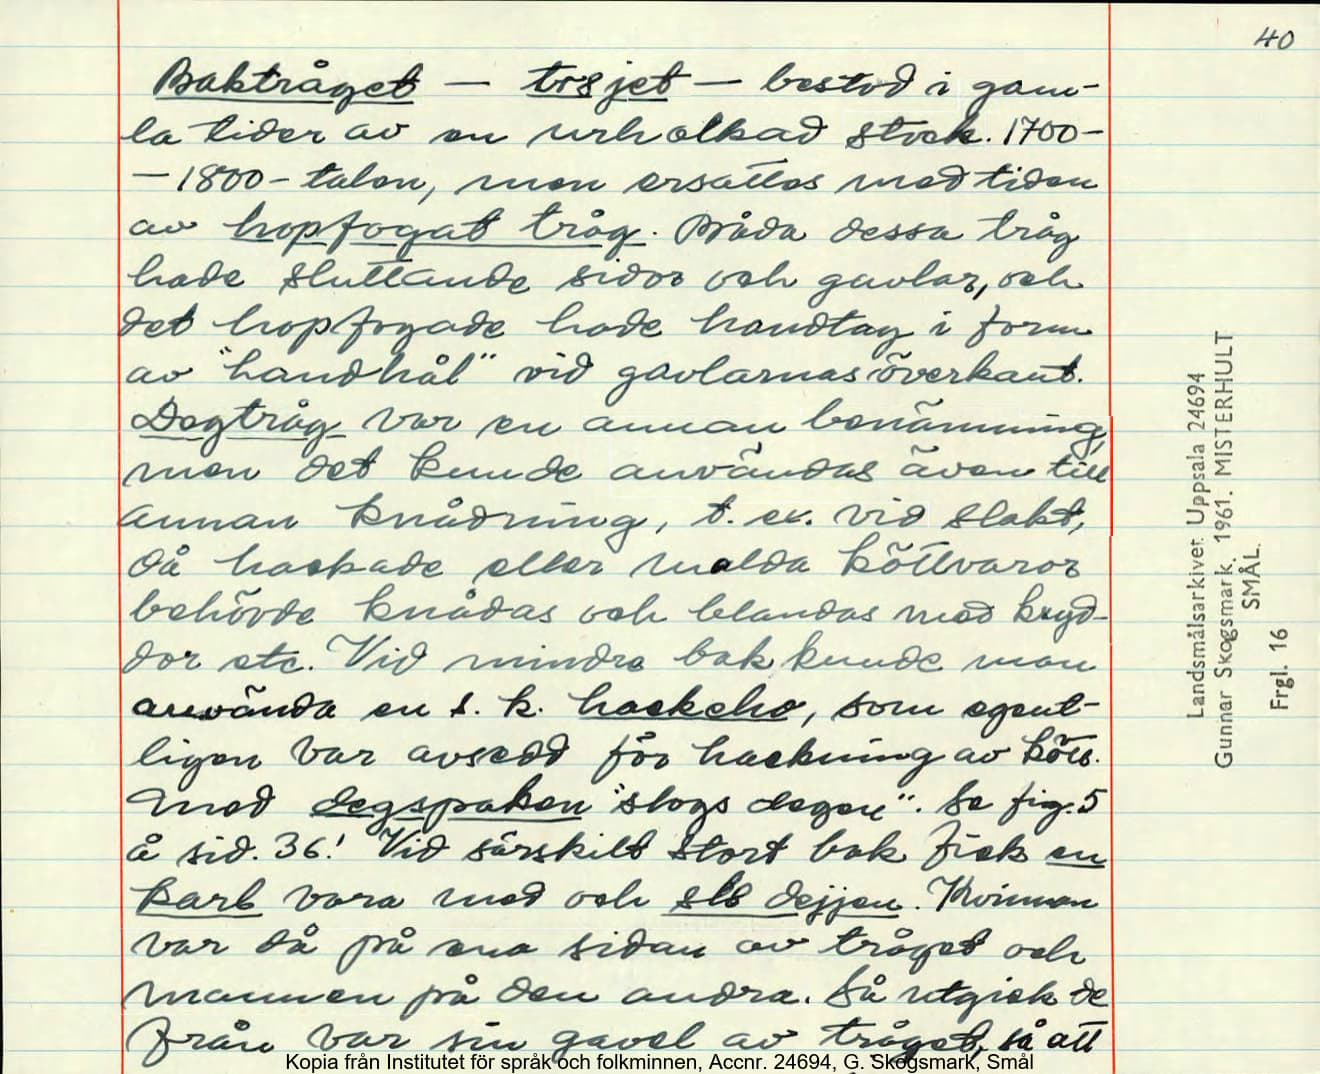 40
Baktråget — tråjet — bestod i gam-
la tider av en urholkad stock. 1700-
— 1800-talen, men ersattes med tiden
av hopfogat tråg. Båda dessa tråg
hade sluttande sidor och gavlar, och
det hopfogade hade handtag i form
av "handhål" vid gavlarnas överkant.
Degtråg var en annan benämning,
men det kunde användas även till
annan knådning, t. ex. vid slakt,
då hackade eller malda köttvaror
behövde knådas och blandas med kryd-
dor etc. Vid mindre bak kunde man
använda en s. k. hackeho, som egent-
ligen var avsedd för hackning av kött.
Med degspaken "slogs degen". Se fig. 5
å sid. 36! Vid särskilt stort bak fick en
karl vara med och slå dejjen. Kvinnan
var då på ena sidan av tråget och
mannen på den andra. Så utgick de
från var sin gavel av tråget, så att
Landsmålsarkivet Uppsala 24694
Gunnar Skogsmark. 1961. MISTERHULT
SMÅL.
Frgl. 16
Kopia från Institutet för språk och folkminnen, Accnr. 24694, G. Skogsmark, Smål